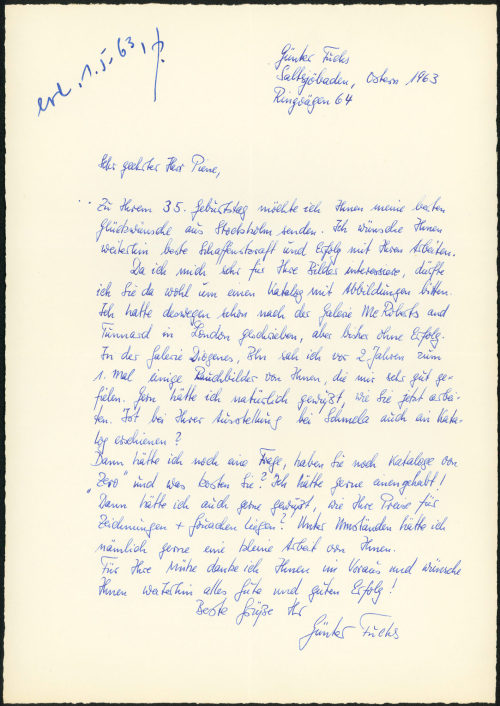 erl. 1.5.63, p.
Günter Fuchs
Saltsjöbaden, Ostern 1963
Ringvägen 64
Sehr geehrter Herr Piene,
Zu Ihrem 35. Geburtstag möchte ich Ihnen meine besten
Glückwünsche aus Stockholm senden. Ich wünsche Ihnen
weiterhin beste Schaffenskraft und Erfolg mit Ihren Arbeiten.
Da ich mich sehr für Ihre Bilder interessiere, dürfte
ich Sie da wohl um einen Katalog mit Abbildungen bitten.
Ich hatte deswegen schon nach der Galerie McRoberts and
Tunnard in London geschrieben, aber bisher ohne Erfolg.
In der Galerie Diogenes, Bln sah ich vor 2 Jahren zum
1. Mal einige Rauchbilder von Ihnen, die mir sehr gut ge-
fielen. Gern hätte ich natürlich gewüßt, wie Sie jetzt arbei-
ten. Ist bei Ihrer Ausstellung bei Schmela auch ein Kata-
log erschienen?
Dann hätte ich noch eine Frage, haben Sie noch Kataloge von
Zero und was kosten Sie? Ich hätte gerne
Dann hätte ich auch gerne gewüßt, wie Ihre Preise für
Zeichnungen + Gouachen liegen? Unter Umständen hätte ich
nämlich gerne eine kleine Arbeit von Ihnen.
Für Ihre Mühe danke ich Ihnen im Voraus und wünsche
Ihnen weiterhin alles Gute und guten Erfolg!
Beste Grüße Ihr
Günter Fuchs